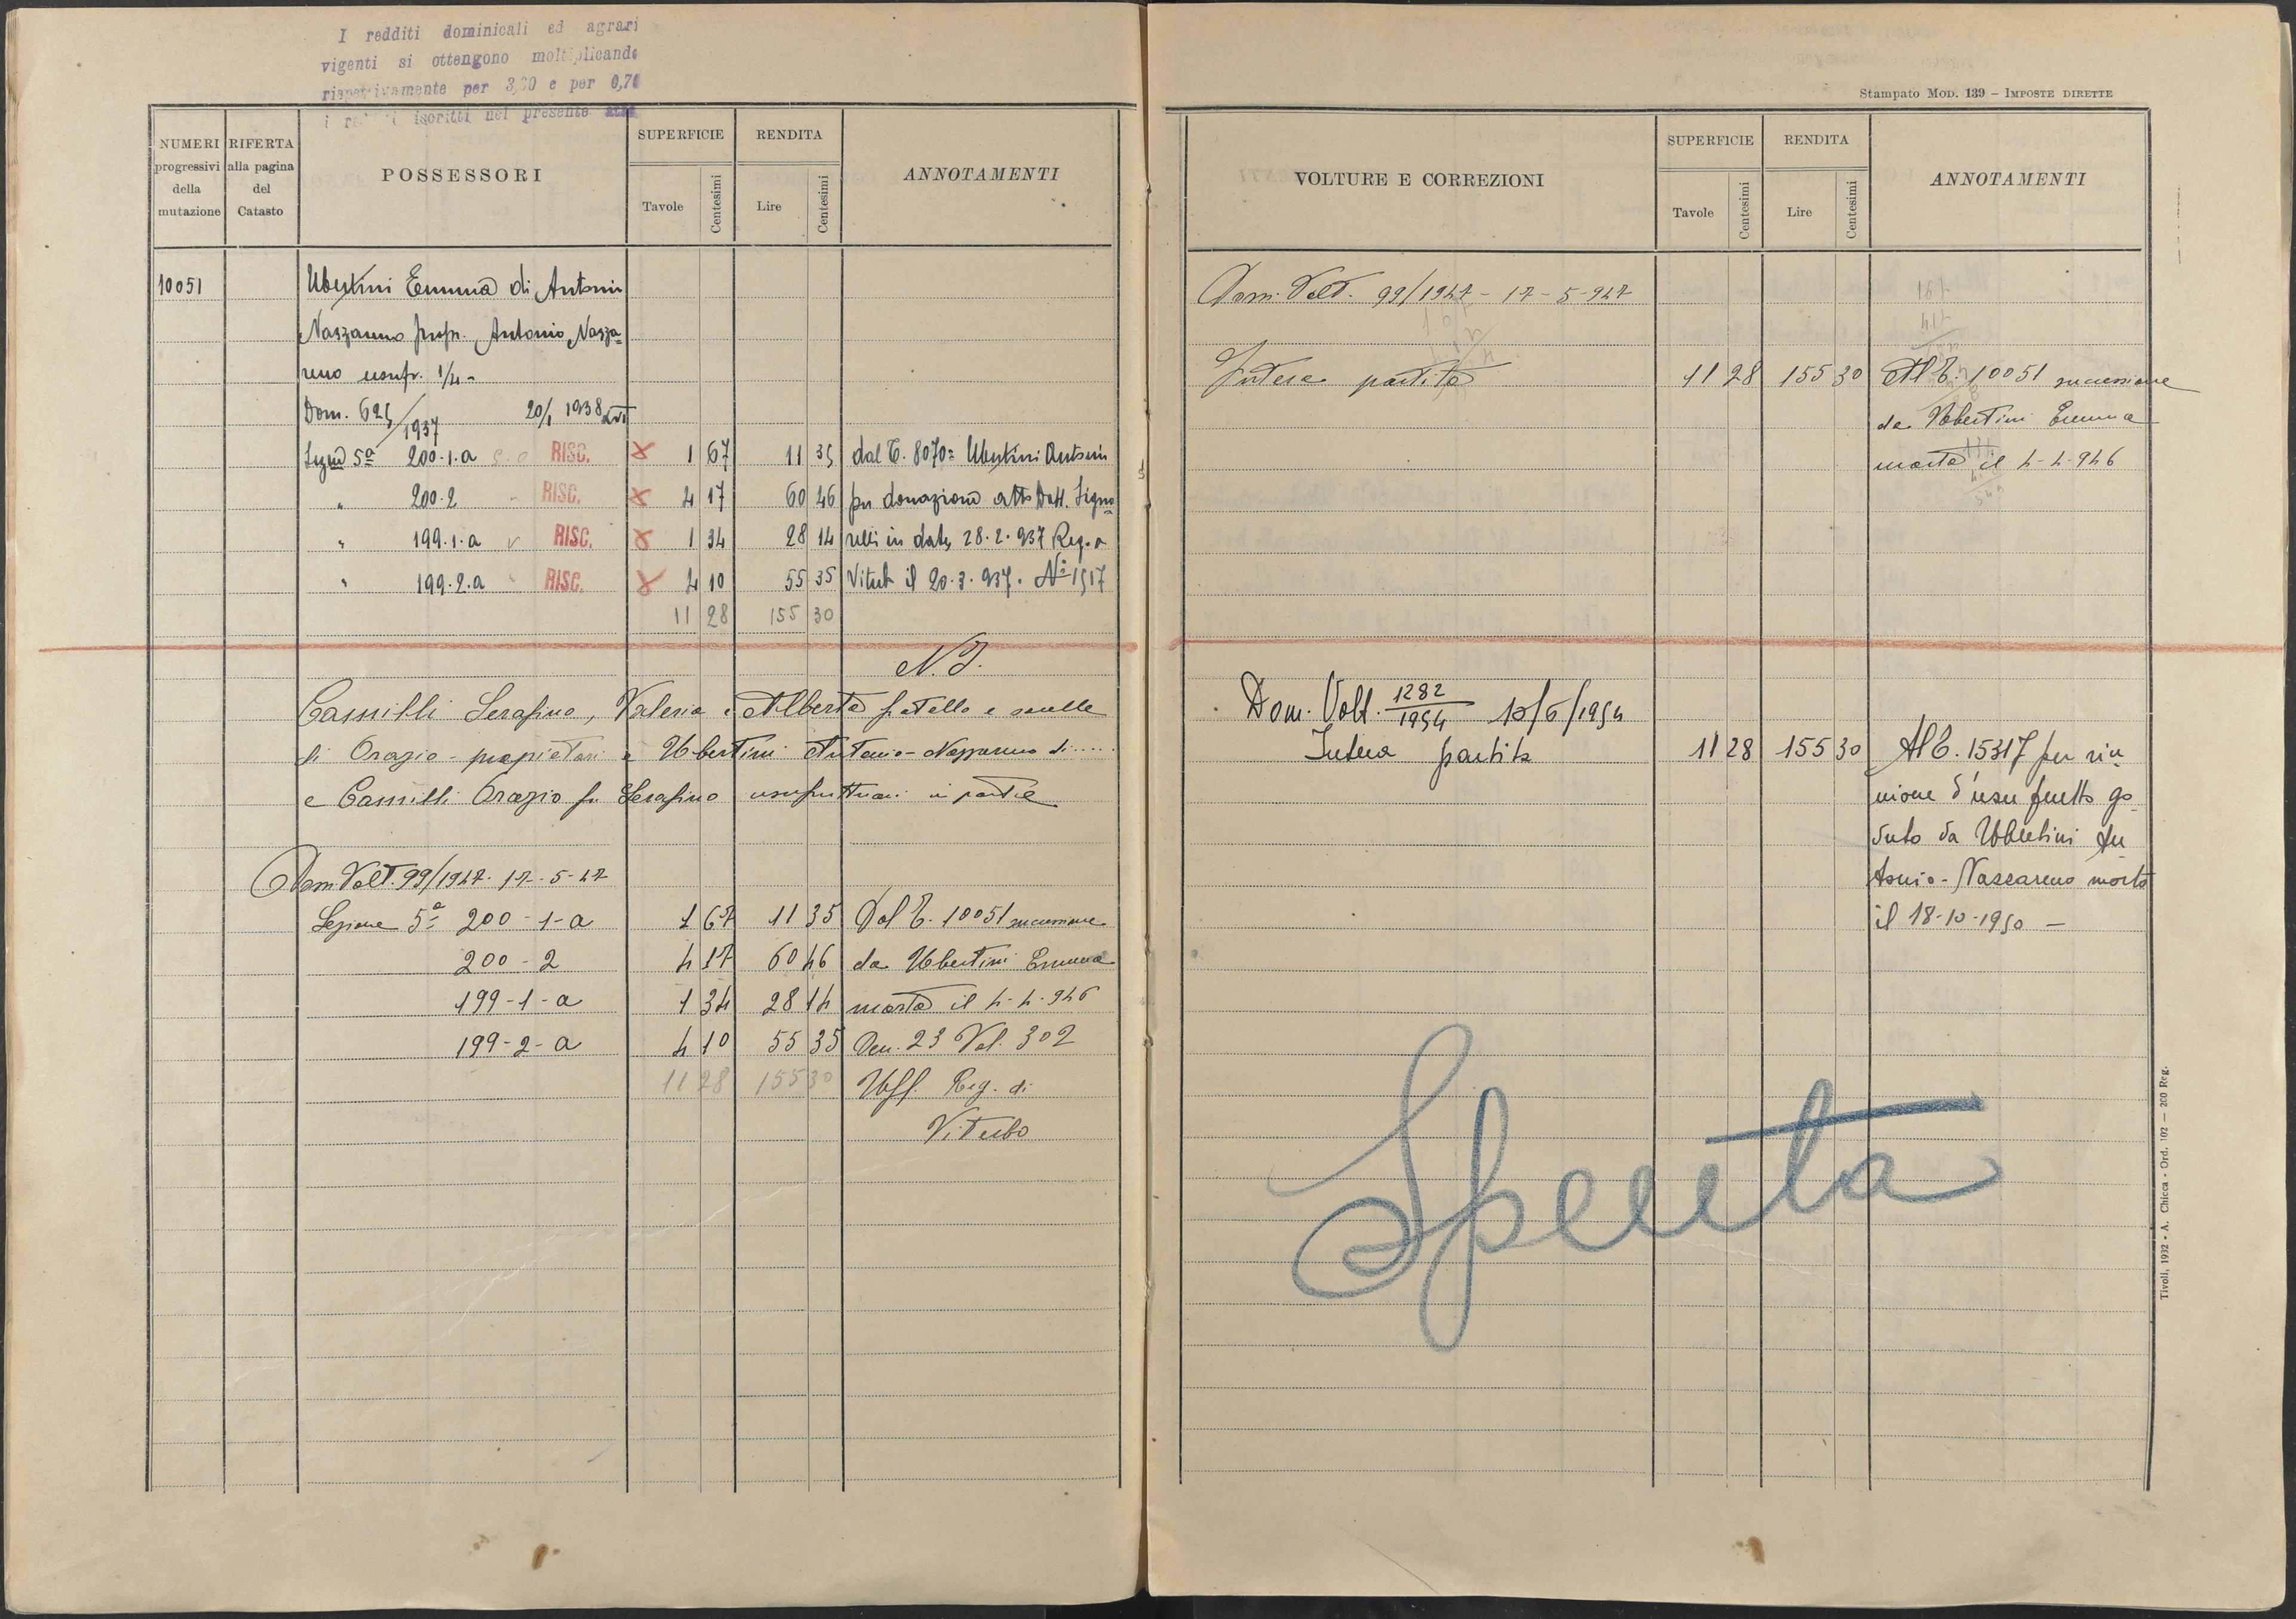 I redditi dominicali ed agrari
vigenti si ottengono moltiplicando
rispettivamente per 3,20 e per 0,70
i iscritti nel presente atto
NUMERI progressivi della mutazione
RIFERTA alla pagina del Catasto
POSSESSORI
SUPERFICIE Tavole Centesimi
RENDITA Lire Centesimi
ANNOTAMENTI
10051 Ubertini Emma di Antonio
Nazzareno propr. Antonio Nazza-
reno usufr. 1/4 -
Dom. 625/1937 20/1 1938 XVI
Sezne 5a 200.1.a RISC. 1 67 11 35 dal C. 8070= Ubertini Antonio
" 200.2 RISC. 4 17 60 46 per donazione atto Dott. Signo-
" 199.1.a RISC. 1 34 28 14 relli in data 28.2.937 Reg. a
" 199.2.a RISC. 4 10 55 35 Viterb il 20.3.937. No 1517
11 28 155 30
N. I.
Camilli Serafino, Valeria e Alberta fratello e sorelle
di Orazio - proprietari e Ubertini Antonio-Nazzareno di.....
e Camilli Orazio fu Serafino usufruttuari in parte
Dom. Volt. 99/1947. 17-5-47
Sezione 5a 200-1-a 1 67 11 35 Dal C. 10051 successione
200-2 4 17 60 46 da Ubertini Emma
199-1-a 1 34 28 14 morta il 4-4-946
199-2-a 4 10 55 35 Den. 23 Vol. 302
11 28 155 30 Uff. Reg. di
Viterbo
Stampato MOD. 139 – IMPOSTE DIRETTE
VOLTURE E CORREZIONI
SUPERFICIE Tavole Centesimi
RENDITA Lire Centesimi
ANNOTAMENTI
Dom. Volt. 99/1947 - 17-5-947
Intera partita 11 28 155 30 Al C. 10051 successione
da Ubertini Emma
morta il 4-4-946
Dom. Volt. 1282/1954 10/6/1954
Intera partita 11 28 155 30 Al C. 15317 per riu-
nione d'usufrutto go-
duto da Ubertini An-
tonio-Nazzareno morto
il 18-10-1950 —
Spenta
Tivoli, 1932 - A. Chicca - Ord. 102 — 200 Reg.